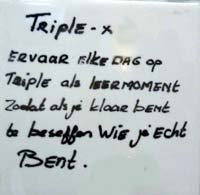 TRIPLE-X
ERVAAR ELKE DAG OP
TRIPLE ALS LEERMOMENT
Zodat als je klaar bent
te beseffen WIE je ECHT
BENT.